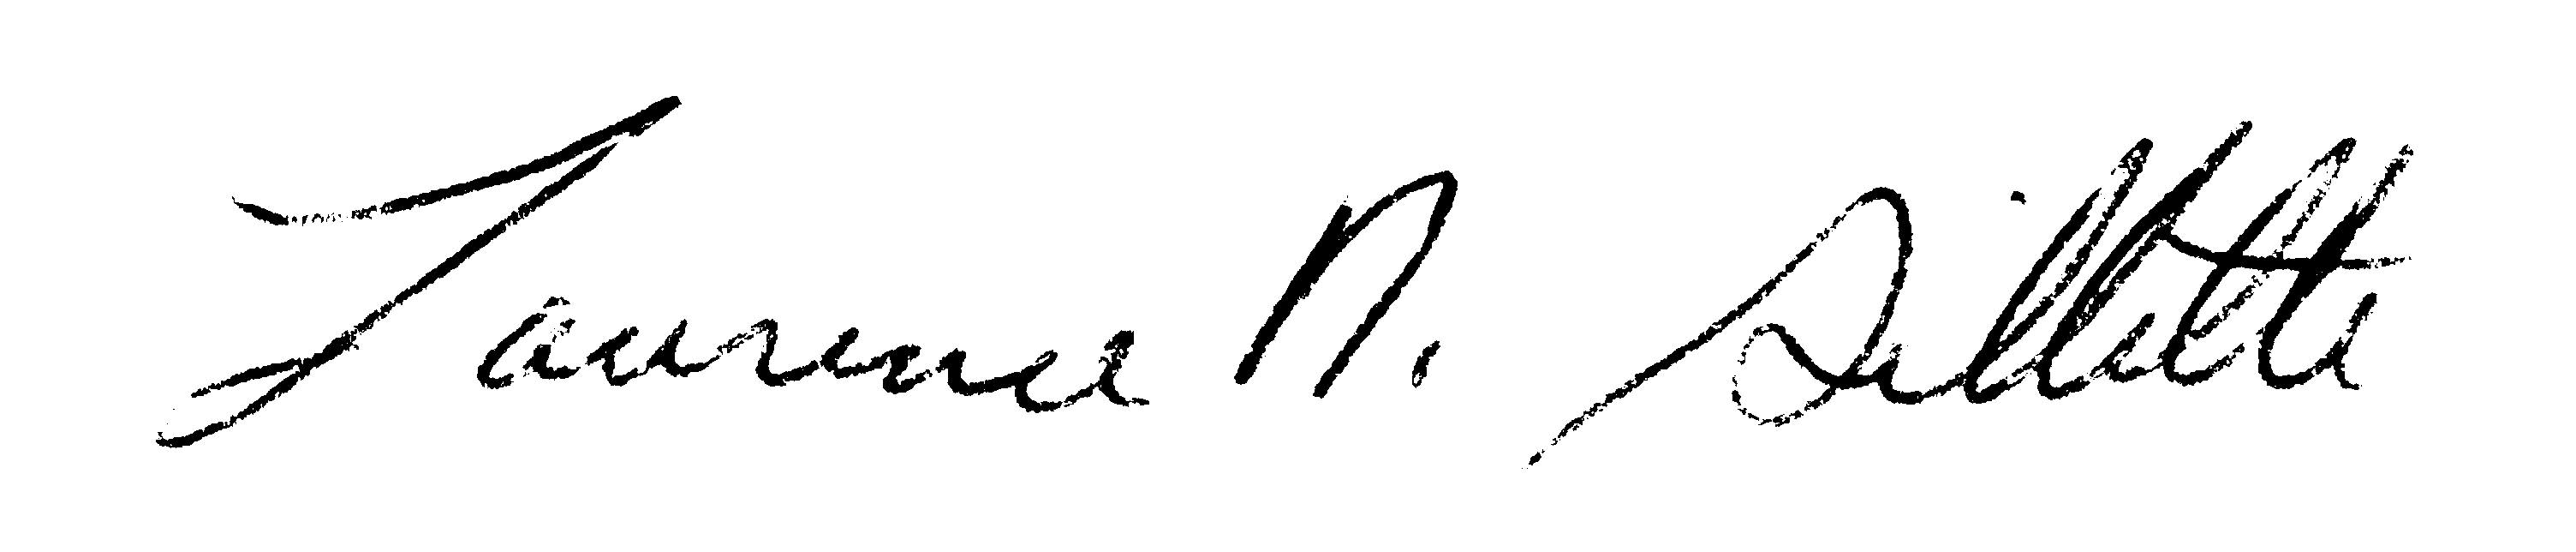 Laurence N. Gillette